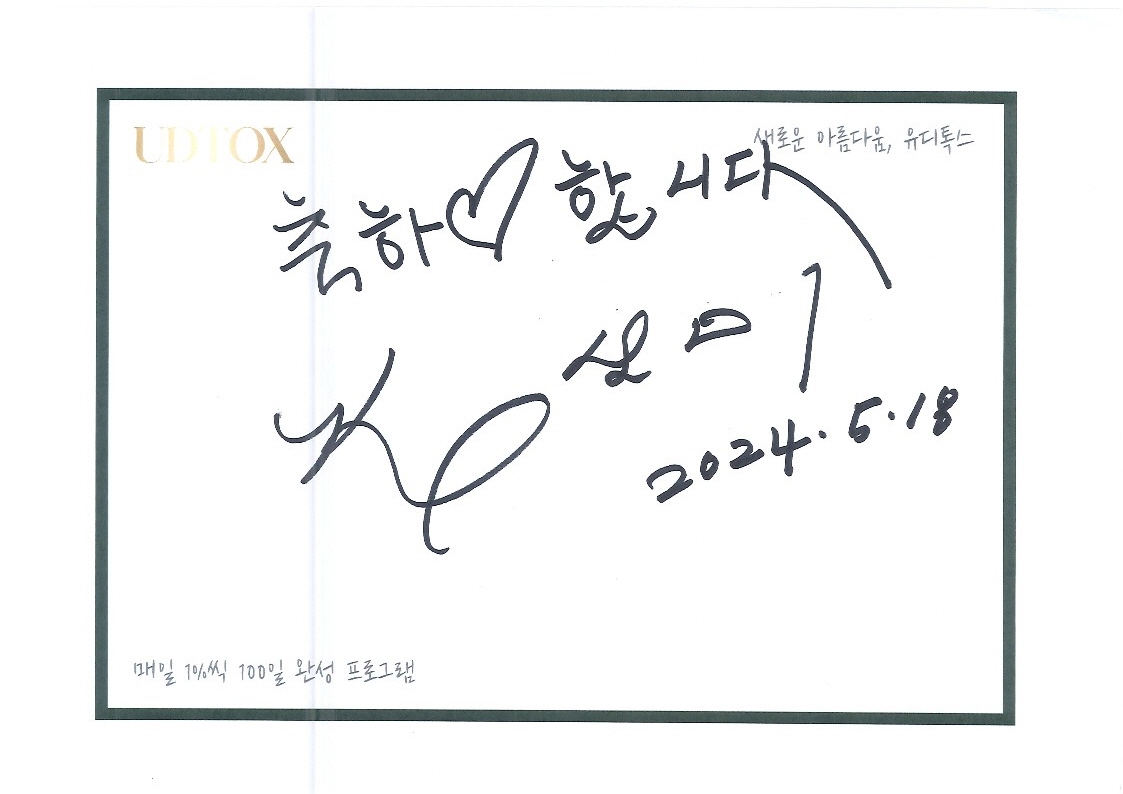 UDTOX
새로운 아름다움, 유디톡스
축하♡합니다
실미
2024.5.18
매일 1%씩 100일 완성 프로그램